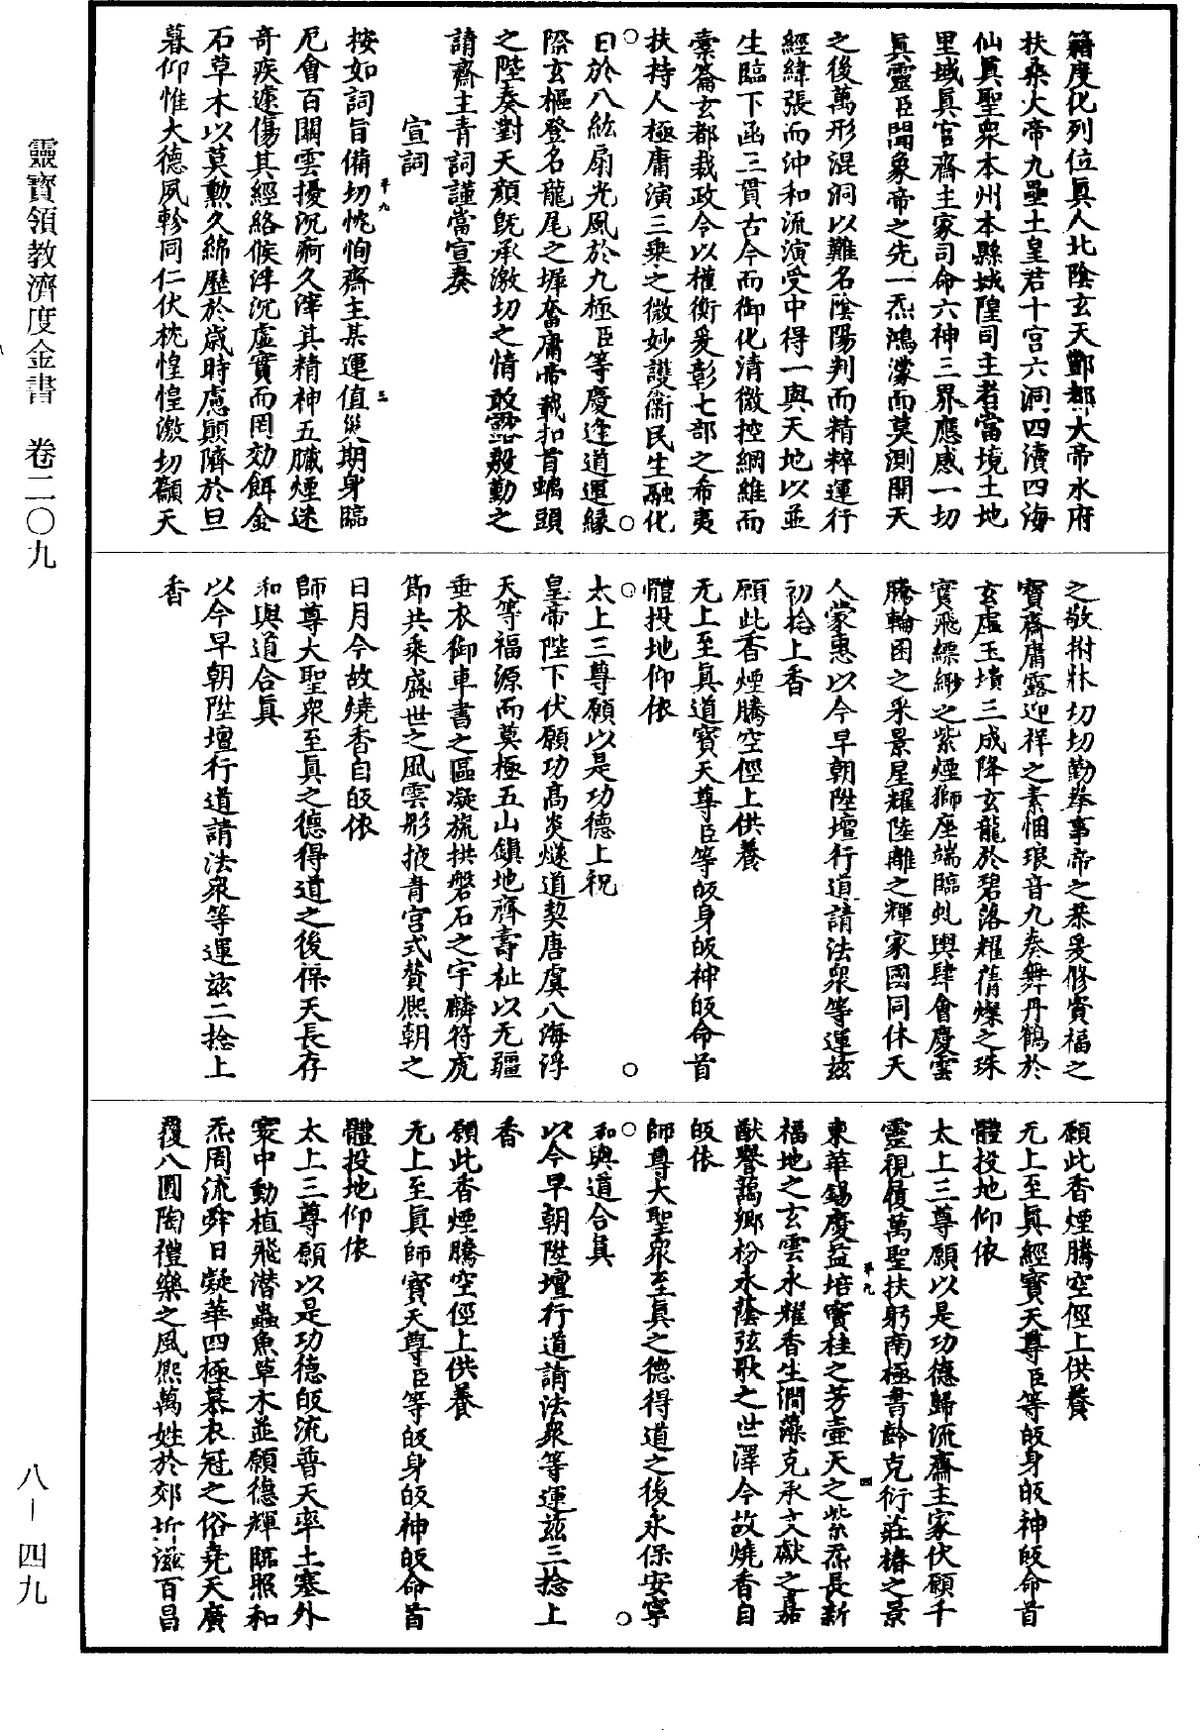 靈寶領教濟度金書　卷二〇九
籍度化列位眞人北陰玄天酆都大帝水府
扶桑大帝九壘土皇君十宫六洞四瀆四海
仙眞聖衆本州本縣城隍司主者當境土地
里域眞官齋主家司命六神三界應感一切
眞靈臣聞象帝之先一炁鴻濛而莫測開天
之後萬形混洞以難名陰陽判而精粹運行
經緯張而沖和流演受中得一與天地以並
生臨下函三貫古今而御化清微控綱維而
橐籥玄都裁政令以權衡爰彰七部之希夷
扶持人極庸演三乘之微妙護衞民生融化
日於八紘扇光風於九極臣等慶逢道運緣
際玄樞登名龍尾之墀奮庸帝載扣首螭頭
之陛奏對天顔既承激切之情敢露殷勤之
請齋主青詞謹當宣奏
宣詞
按如詞旨備切忱恂齋主某運值災期身臨
厄會百關雲擾沉痾久滓其精神五臟煙迷
奇疾遽傷其經絡候浮沉虛實而罔効餌金
石草木以莫勲久綿歷於歲時慮顛隮於旦
暮仰惟大德夙軫同仁伏枕惶惶激切籲天
之敬拊牀切切勤拳事帝之恭爰修寳福之
寶齋庸露迎祥之素悃琅音九奏舞丹鶴於
玄虛玉墳三成降玄龍於碧落耀蒨燦之珠
實飛縹緲之紫煙獅座端臨虬輿肆會慶雲
騰輪囷之釆景星耀陸離之輝家國同休天
人蒙惠以今早朝陞壇行道請法衆等運兹
初捻上香
願此香煙騰空徑上供養
无上至眞道寶天尊臣等皈身皈神皈命首
體投地仰依
太上三尊願以是功德上祝
皇帝陛下伏願功髙炎燧道契唐虞八海浮
天等福源而莫極五山鎭地齊壽祉以无疆
垂衣御車書之區凝旒拱磐石之宇麟符虎
節共乘盛世之風雲彤掖青宫式贊熙朝之
日月今故燒香自皈依
師尊大聖衆至眞之德得道之後保天長存
和與道合眞
以今早朝陞壇行道請法衆等運兹二捻上
香
願此香煙騰空徑上供養
无上至眞經寶天尊臣等皈身皈神皈命首
體投地仰依
太上三尊願以是功德歸流齋主家伏願千
靈視履萬聖扶躬南極書齡克衍莊椿之景
東華錫慶益培竇桂之芳壷天之紫炁長新
福地之玄雲永耀香生澗藻克承文獻之嘉
猷譽藹鄉枌永蔭弦歌之世澤今故燒香自
皈依
師尊大聖衆至眞之德得道之後永保安寧
和與道合眞
以今早朝陞壇行道請法衆等運兹三捻上
香
願此香煙騰空徑上供養
无上至眞師寳天尊臣等皈身皈神皈命首
體投地仰依
太上三尊願以是功德皈流普天率土塞外
寰中動植飛潛蟲魚草木並願德輝臨照和
炁周流舜日凝華四極慕衣冠之俗堯天廣
覆八圓陶禮樂之風熙萬姓於郊圻滋百昌
八—四九